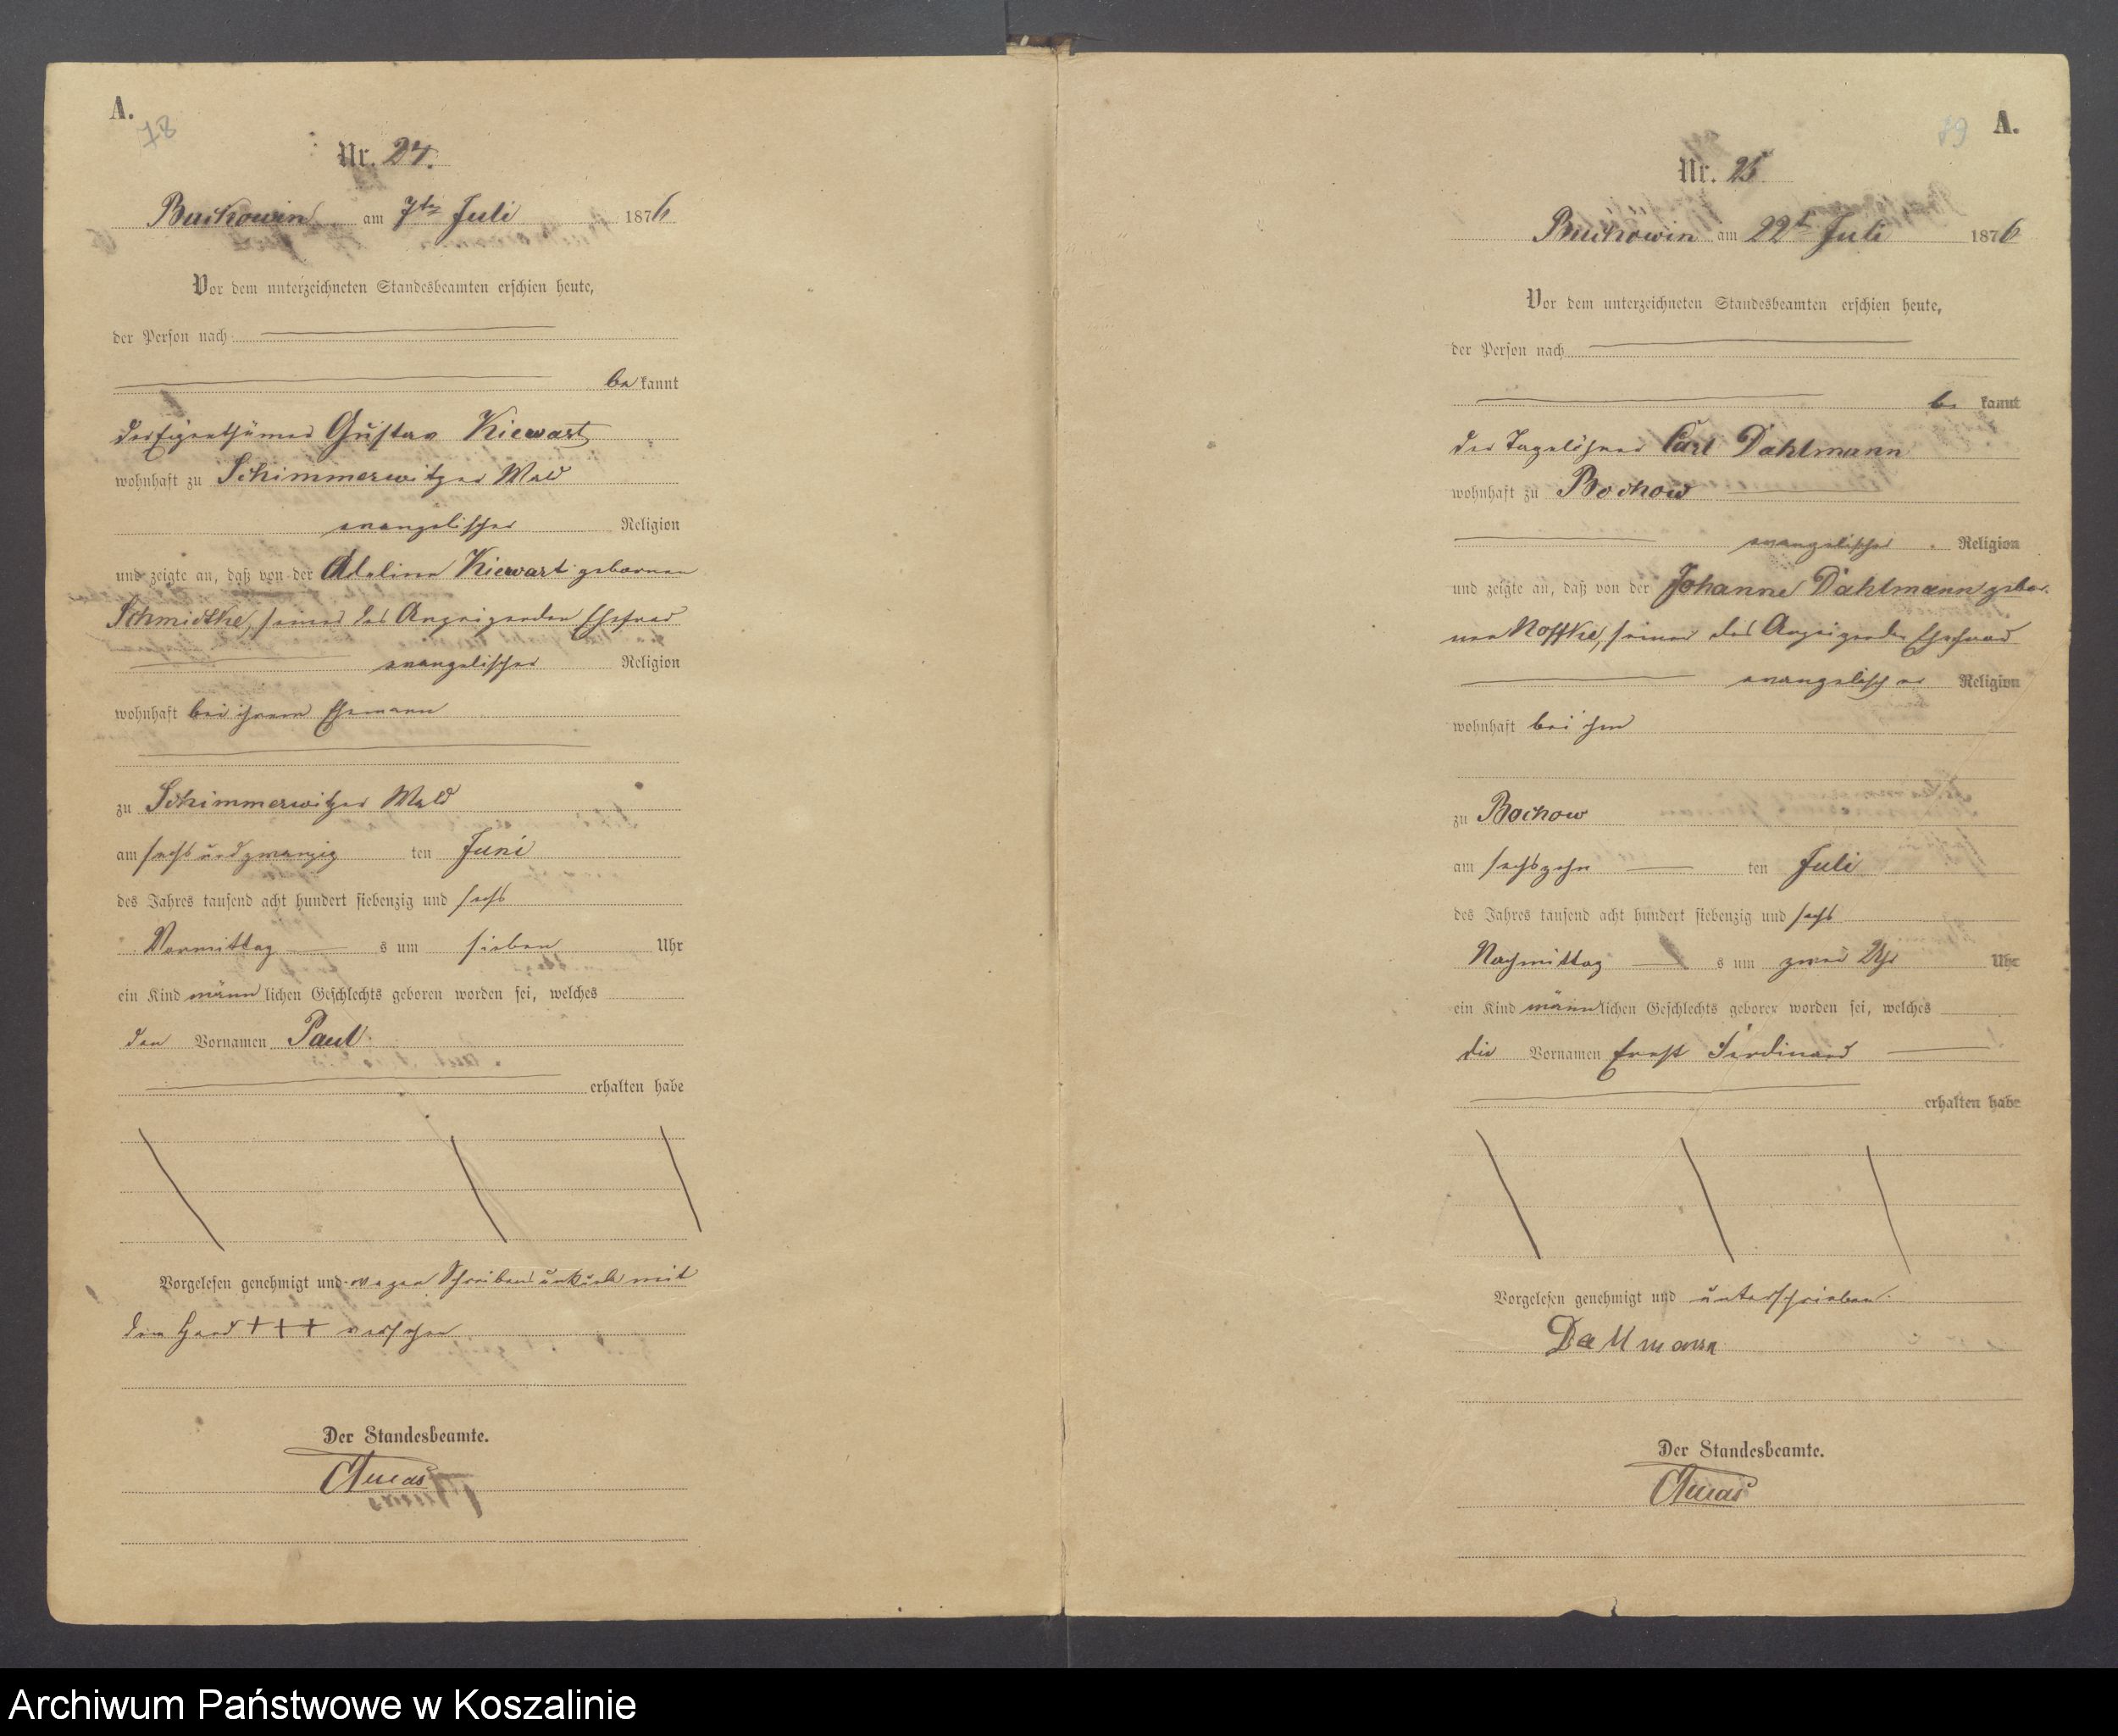 A.
78
Nr. 24.
Buckowin am 7ten Juli 1876
Vor dem unterzeichneten Standesbeamten erschien heute,
der Person nach
be kannt
der Eigenthümer Gustav Kiewart
wohnhaft zu Schimmerwitzer Wald
evangelischer Religion
und zeigte an, daß von der Adeline Kiewart gebornen
Schmidtke, seiner des Anzeigenden Ehefrau
evangelischer Religion
wohnhaft bei ihrem Ehemann
zu Schimmerwitzer Wald
am sechs und zwanzig ten Juni
des Jahres tausend acht hundert siebenzig und sechs
Vormittag s um sieben Uhr
ein Kind männ lichen Geschlechts geboren worden sei, welches
den Vornamen Paul
erhalten habe
Vorgelesen genehmigt und wegen Schreibens unkunde mit
dem Hand +++ versehen
Der Standesbeamte.
A.
Nr. 25
Buckowin am 22t Juli 1876
Vor dem unterzeichneten Standesbeamten erschien heute,
der Person nach
be kannt
der Tagelöhner Carl Dahlmann
wohnhaft zu Bochow
evangelischer Religion
und zeigte an, daß von der Johanne Dahlmann gebor-
nen Noffke, seiner des Anzeigenden Ehefrau
evangelisch er Religion
wohnhaft bei ihm
zu Bochow
am sechszehn ten Juli
des Jahres tausend acht hundert siebenzig und sechs
Nachmittag s um zwei Uhr Uhr
ein Kind männ lichen Geschlechts geboren worden sei, welches
die Vornamen Ernst Ferdinand
erhalten habe
Vorgelesen genehmigt und unterschrieben
Dallmann
Der Standesbeamte.
Archiwum Państwowe w Koszalinie